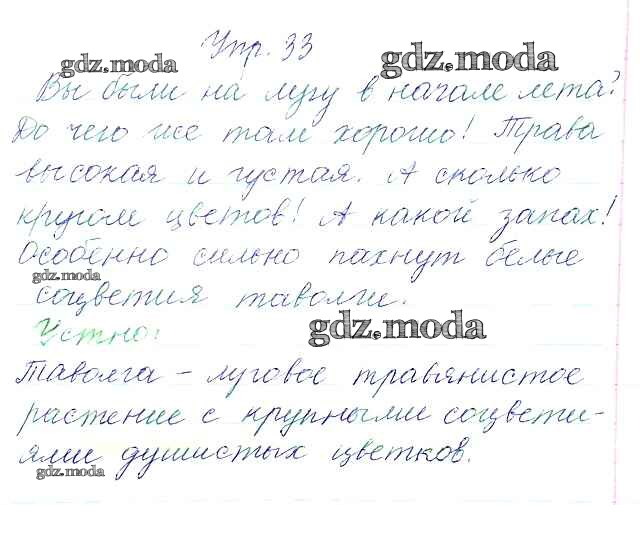 Упр. 33
gdz.moda
gdz.moda
Вы были на лугу в начале лета?
До чего же там хорошо! Трава
высокая и густая. А сколько
кругом цветов! А какой запах!
Особенно сильно пахнут белые
gdz.moda
соцветия таволги.
Устно:
gdz.moda
Таволга – луговое травянистое
растение с крупными соцвети-
ями душистых цветков.
gdz.moda